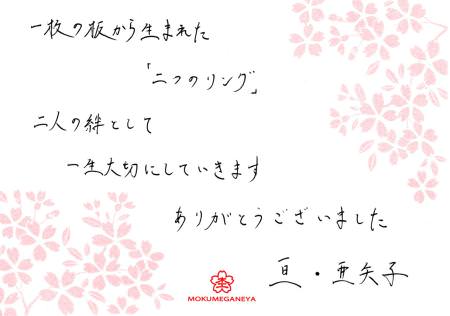 一枚の板から生まれた
「二つのリング」
二人の絆として
一生大切にしていきます
ありがとうございました
亘・亜矢子
杢
MOKUMEGANEYA